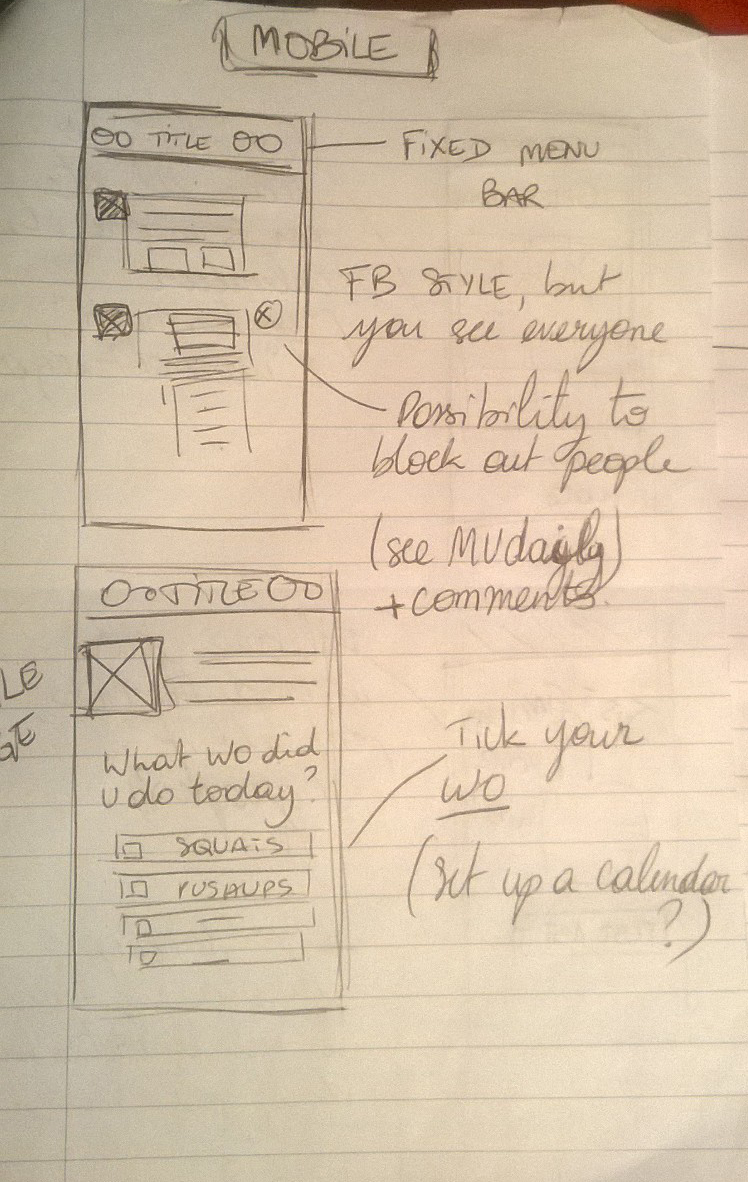 MOBILE
OO TITLE OO
FIXED MENU
BAR
FB STYLE, but
you see everyone
Possibility to
block out people
(see MUdaily)
+comments.
OO TITLE OO
What WO did
u do today?
SQUATS
PUSHUPS
Tick your
WO
(set up a calendar
?)